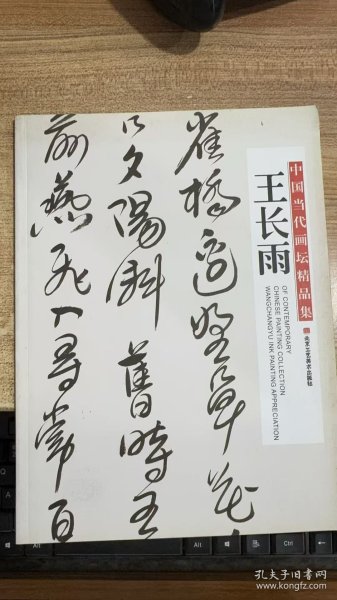 中国当代画坛精品集
王长雨
OF CONTEMPORARY
CHINESE PAINTING COLLECTION
WANGCHANGYU INK PAINTING APPRECIATION
北京工艺美术出版社
雀橋邊野草花
口夕陽斜舊時王
前燕飛入尋常百
Alt
Alt
Ctrl
孔夫子旧书网
kongfz.com